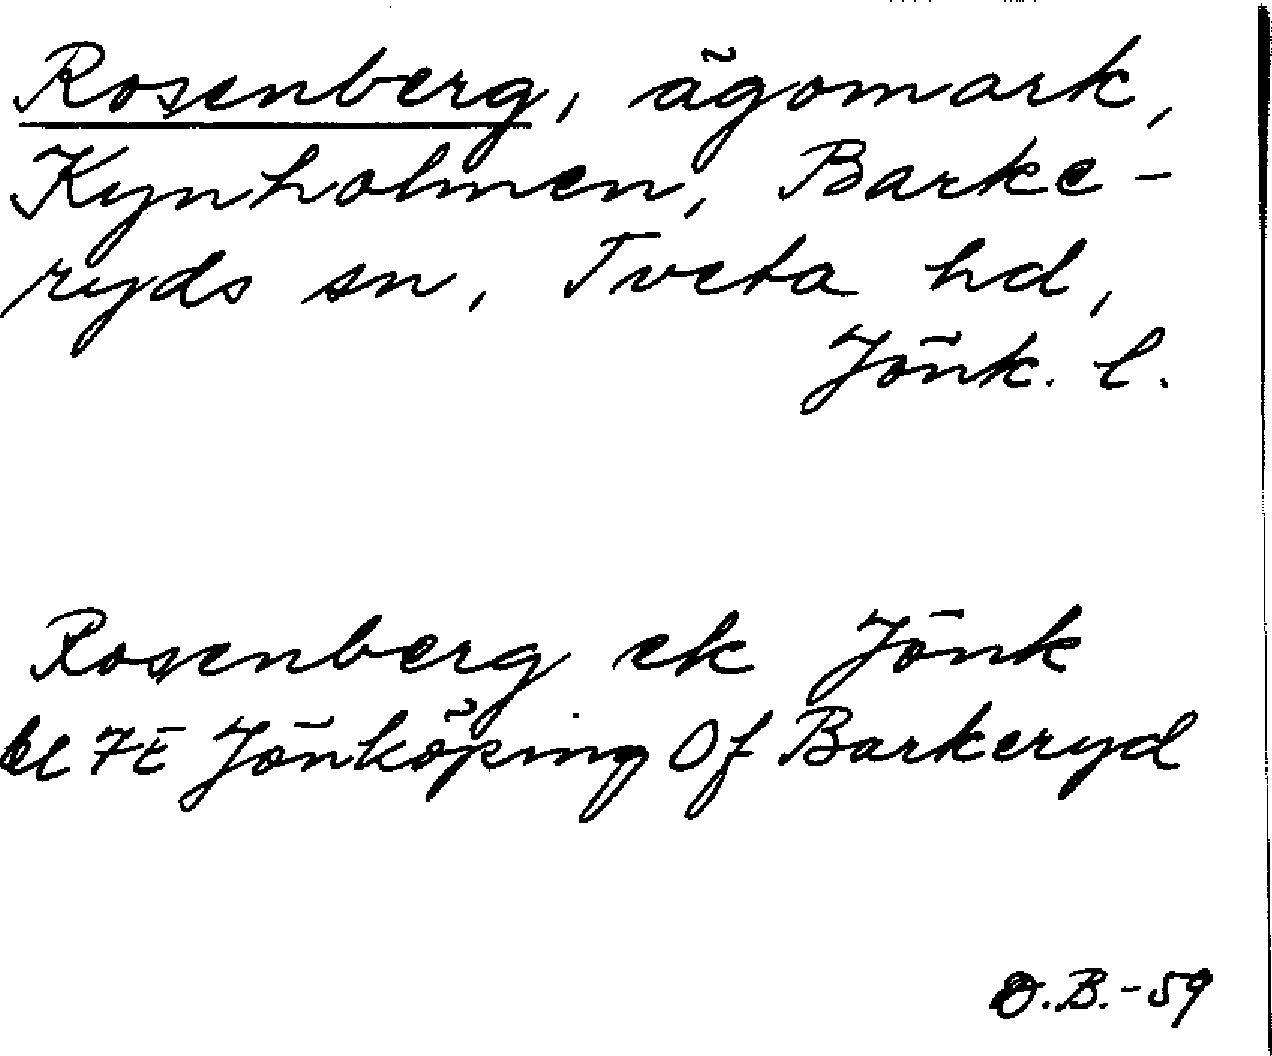 Rosenberg, ägomark,
Kynholmen, Barke-
ryds sn, Tveta hd,
Jönk. l.
Rosenberg ek Jönk
bl 7E Jönköping Of Barkeryd
O.B.-59